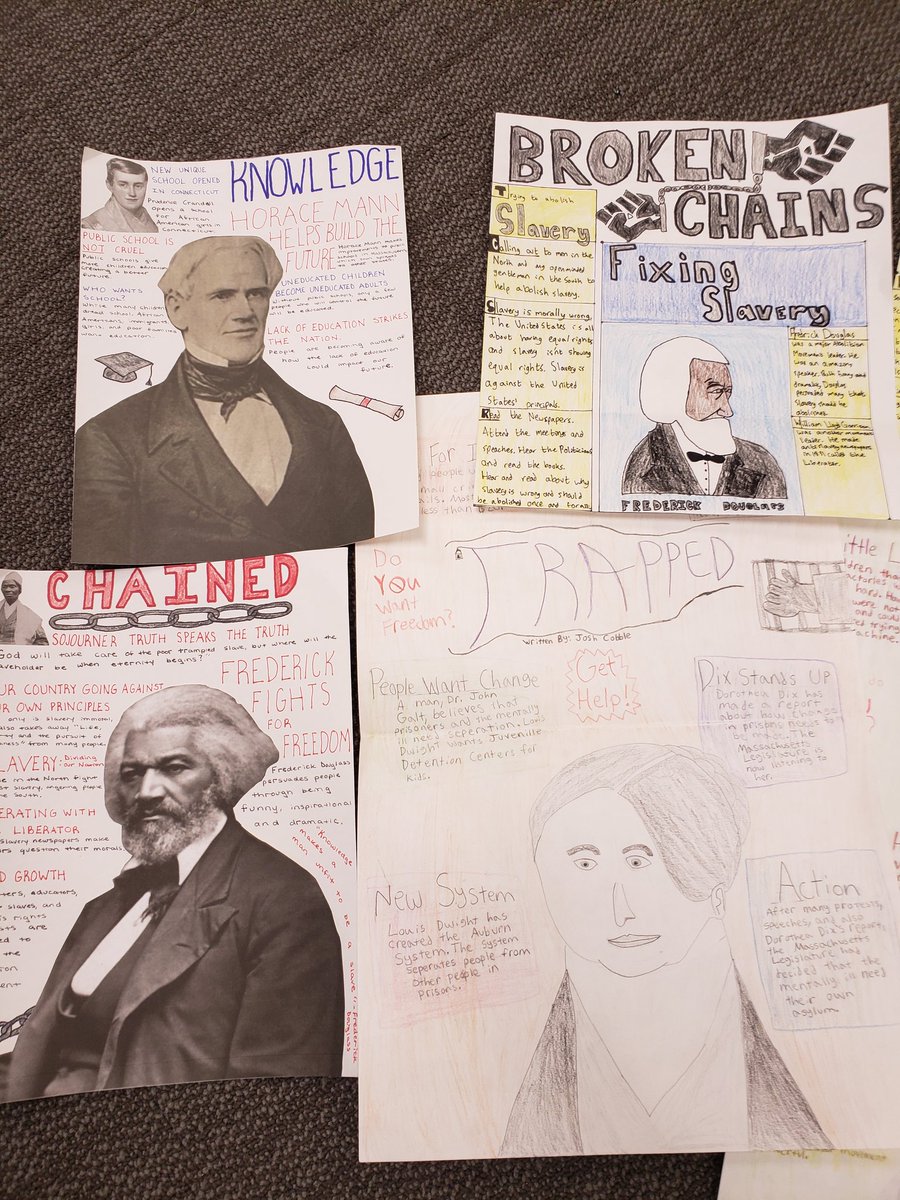 KNOWLEDGE
NEW UNIQUE
SCHOOL OPENED
IN CONNECTICUT
Prudence Crandall
opens a school
for African
American girls in
Connecticut.
HORACE MANN
HELPS BUILD THE
FUTURE
Horace Mann makes
improvements to
PUBLIC SCHOOL IS
NOT CRUEL
Public schools give
more children education
creating a better
future.
UNEDUCATED CHILDREN
BECOME UNEDUCATED ADULTS
Without public schools only a few
people who will control the future
will be educated.
WHO WANTS
SCHOOL?
While many children
dread school, African
Americans, immigrants,
girls, and poor families
want education.
LACK OF EDUCATION STRIKES
THE NATION.
People are becoming aware of
how the lack of education
could impact our
future.
BROKEN
CHAINS
Trying to abolish
Slavery
Calling out to men in the
North and my openminded
gentlemen in the south to
help abolish slavery.
Slavery is morally wrong.
The United States is all
about having equal rights
and slavery isnt showing
equal rights. Slavery is
against the United
States' principals.
Read the Newspapers.
Attend the meetings and
speeches. Hear the Politicians
and read the books.
Hear and read about why
slavery is wrong and should
be abolished once and for all.
Fixing
Slavery
FREDERICK DOUGLASS
Fredrick Douglas
was a major Abolition
Movement leader. He
was an amazing
speaker. Both funny and
dramatic, Douglas
persuaded many that
slavery should be
abolished.
William Lloyd Garrison
was another movement
leader. He made
antislavery newspapers
in 1831 called the
Liberator.
CHAINED
SOJOURNER TRUTH SPEAKS THE TRUTH
God will take care of the poor trampled slave, but where will the
slaveholder be when eternity begins?
OUR COUNTRY GOING AGAINST
OUR OWN PRINCIPLES
only is slavery immoral,
also takes away "Life,
and the pursuit of
from many people.
SLAVERY: Dividing
Our Nation
in the North fight
slavery, angering people
the South.
WITH
LIBERATOR
slavery newspapers make
question their morals.
GROWTH
educators,
slaves, and
rights
are
to
the
FREDERICK
FIGHTS
FOR
FREEDOM
Frederick Douglass
persuades people
through being
funny, inspirational
and dramatic.
"Knowledge
makes a
man unfit to be a
slave"-Frederick
Douglass
For
people
small
jails. Most
less than
Do
You
Want
Freedom?
TRAPPED
Written By: Josh Cobble
People Want Change
A man, Dr. John
Galt, believes that
prisoners and the mentally
in need seperation. Louis
Dwight wants Juvenille
Detention Centers for
kids.
Get
Help!
Dix Stands Up
Dorothea Dix has
made a report
about how change
in prisons needs to
be made. The
Massachusetts
Legislature is
now listening to
her.
New System
Louis Dwight has
created the Auburn
System. The system
seperates people from
other people in
prisons.
Action
After many protests,
speeches, and also
Dorothea Dix's report,
the Massachusetts
Legislature has
decided that the
mentally in need
their own
asylum.